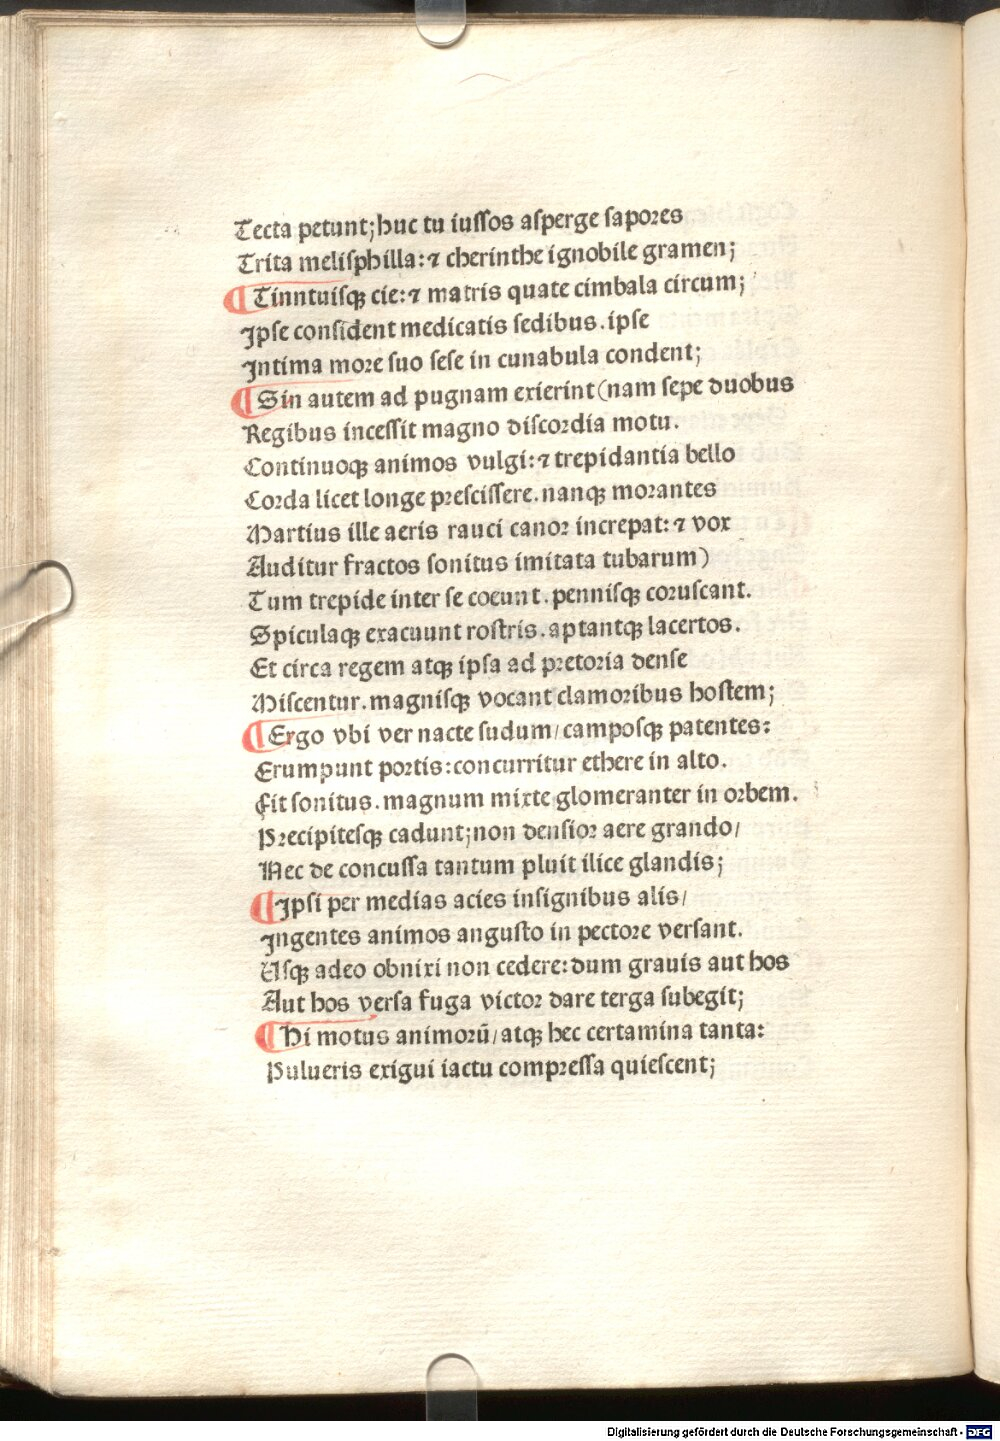 Tecta petunt; huc tu iuſſos aſperge ſapores
Trita meliſphilla: ⁊ cherinthe ignobile gramen;
¶ Tinntuiſqꝫ cie: ⁊ matris quate cimbala circum;
Ipſe conſident medicatis ſedibus. ipſe
Intima more ſuo ſeſe in cunabula condent;
¶ Sin autem ad pugnam exierint (nam ſepe duobus
Regibus inceſſit magno diſcordia motu.
Continuoqꝫ animos vulgi: ⁊ trepidantia bello
Corda licet longe preſciſſere. nanqꝫ morantes
Martius ille aeris rauci canor increpat: ⁊ vox
Auditur fractos ſonitus imitata tubarum)
Tum trepide inter ſe coeunt. penniſqꝫ coruſcant.
Spiculaqꝫ exacuunt roſtris. aptantqꝫ lacertos.
Et circa regem atqꝫ ipſa ad pretoria denſe
Miſcentur. magniſqꝫ vocant clamoribus hoſtem;
¶ Ergo vbi ver nacte ſudum/ campoſqꝫ patentes:
Erumpunt portis: concurritur ethere in alto.
Fit ſonitus. magnum mixte glomeranter in orbem.
Precipiteſqꝫ cadunt; non denſior aere grando/
Nec de concuſſa tantum pluit ilice glandis;
¶ Ipſi per medias acies inſignibus alis/
Ingentes animos anguſto in pectore verſant.
Uſqꝫ adeo obnixi non cedere: dum grauis aut hos
Aut hos verſa fuga victor dare terga ſubegit;
¶ Hi motus animorū/ atqꝫ hec certamina tanta:
Pulueris exigui iactu compreſſa quieſcent;
Digitalisierung gefördert durch die Deutsche Forschungsgemeinschaft - DFG